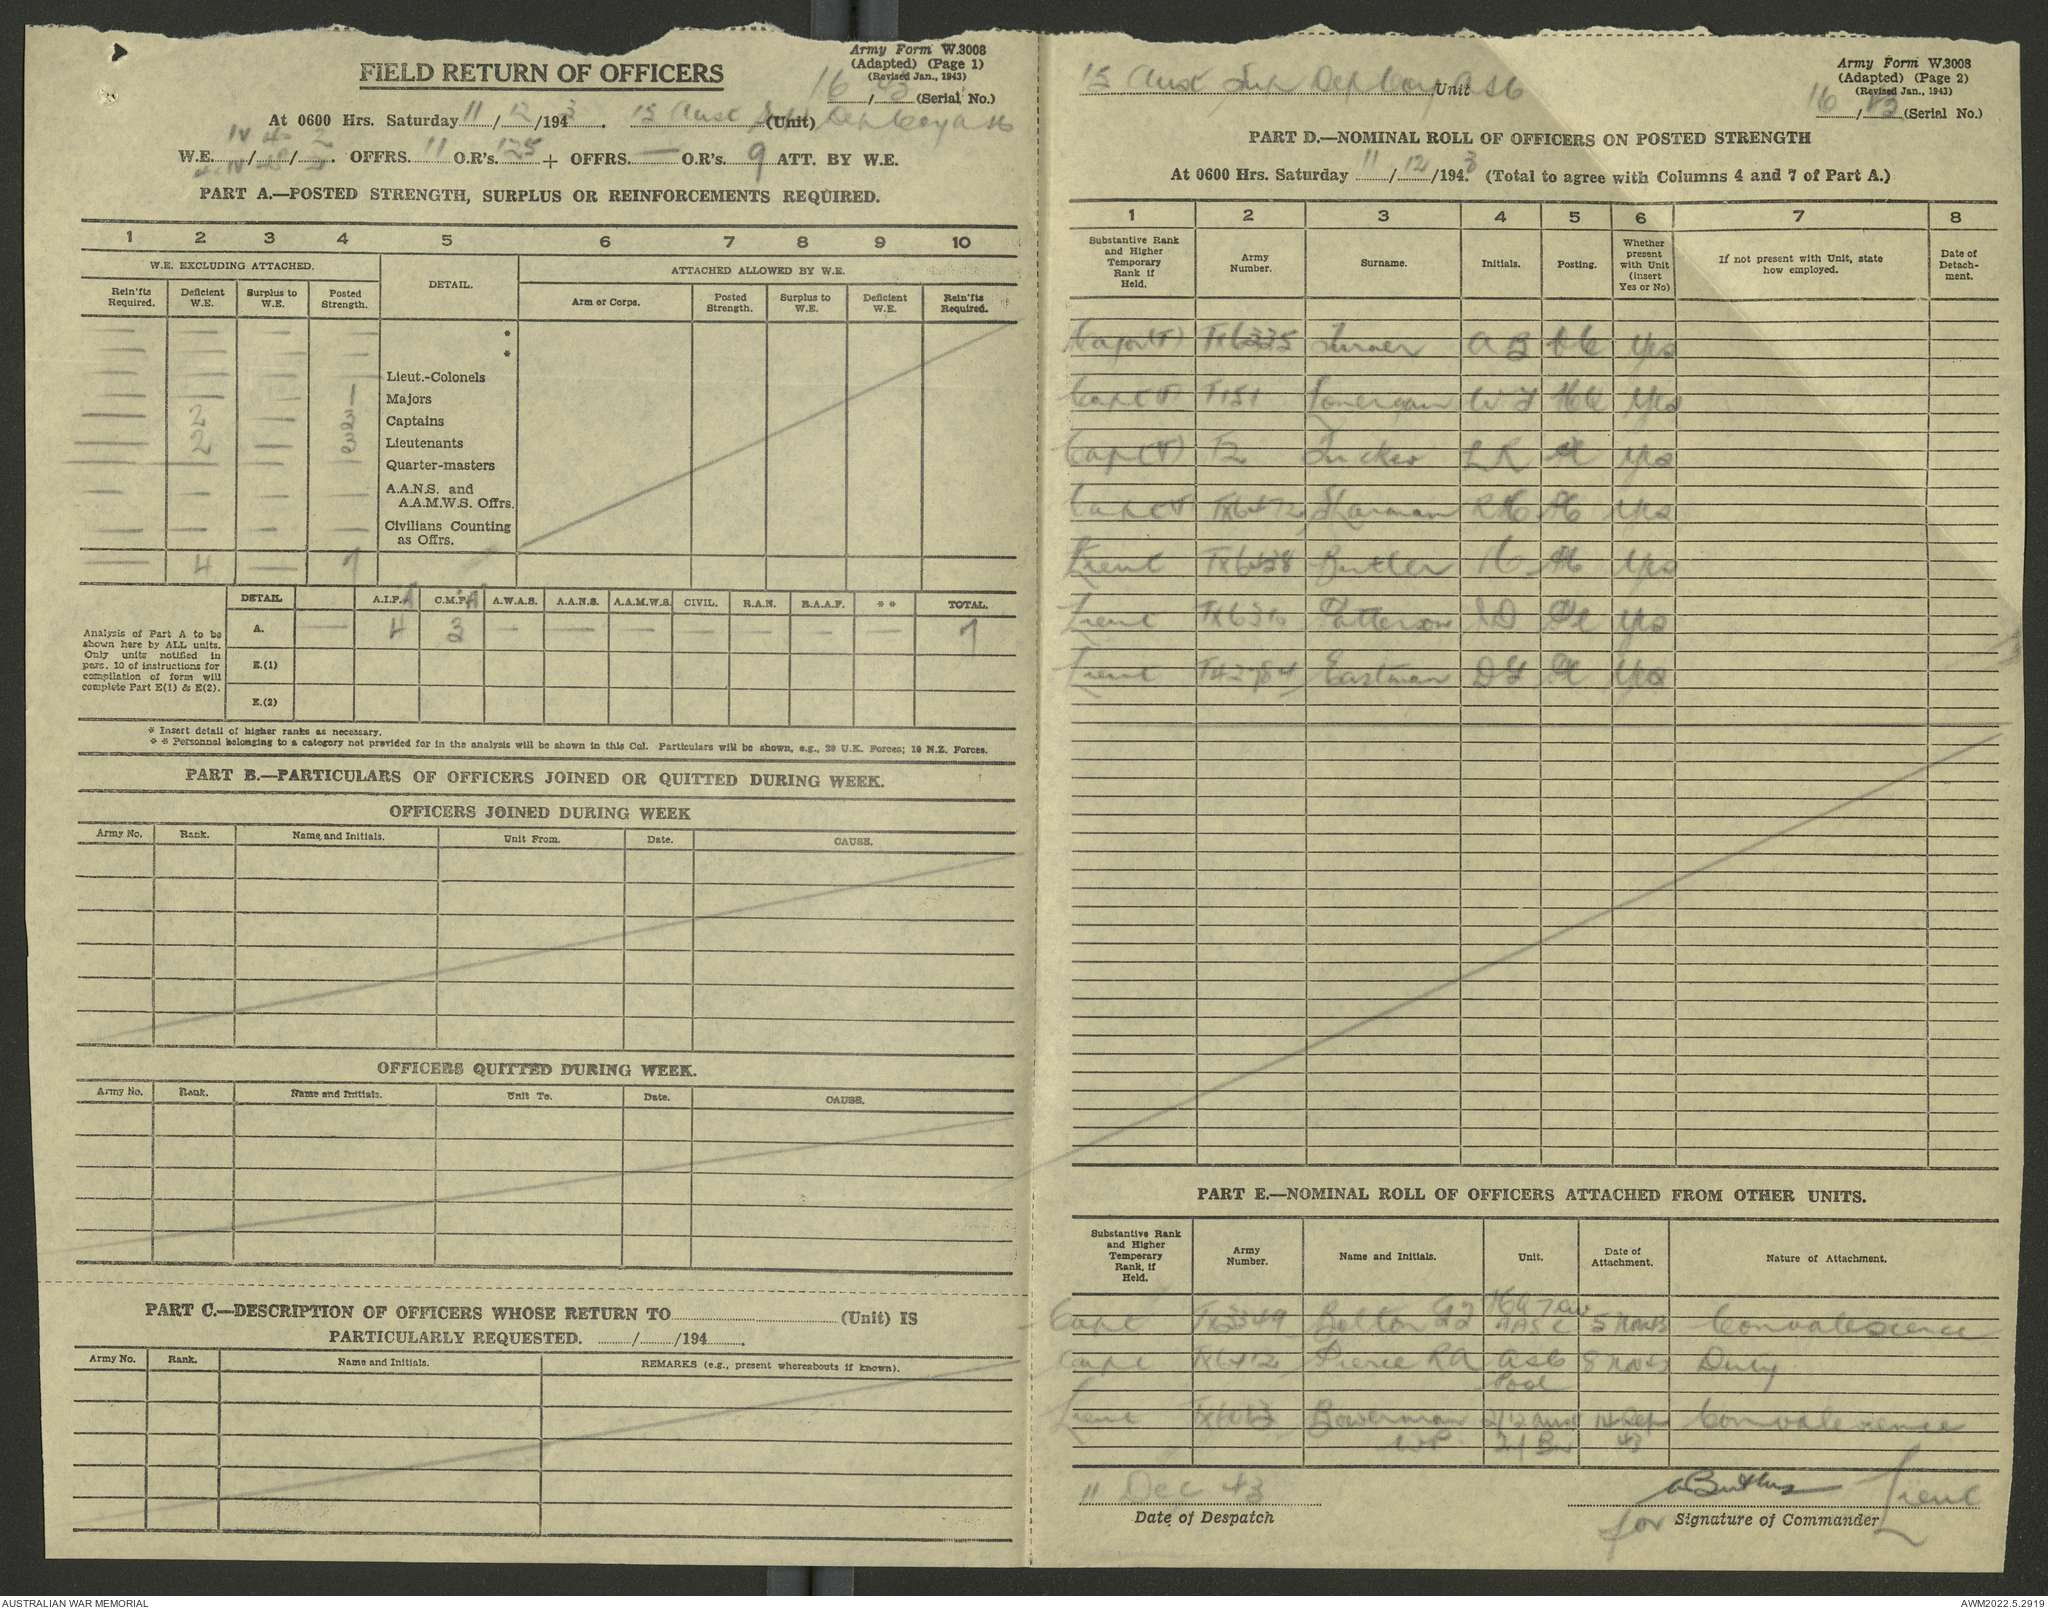 FIELD RETURN OF OFFICERS
Army Form W.3008
(Adapted) (Page 1)
(Revised Jan., 1943)
16 / 43 (Serial No.)
At 0600 Hrs. Saturday 11 / 12 /1943. 15 Aust Sup Dep Coy AASC (Unit)
W.E. IV / 4 / 2. OFFRS. 11 O.R's. 125 + OFFRS. — O.R's. 9 ATT. BY W.E.
PART A.—POSTED STRENGTH, SURPLUS OR REINFORCEMENTS REQUIRED.
1 2 3 4 5 6 7 8 9 10
W.E. EXCLUDING ATTACHED. DETAIL. ATTACHED ALLOWED BY W.E.
Rein'fts Required. Deficient W.E. Surplus to W.E. Posted Strength. Arm or Corps. Posted Strength. Surplus to W.E. Deficient W.E. Rein'fts Required.
— — — — *
— — — — *
— — — — Lieut.-Colonels
— — — 1 Majors
— 2 — 3 Captains
— 2 — 3 Lieutenants
— — — — Quarter-masters
— — — — A.A.N.S. and A.A.M.W.S. Offrs.
— — — — Civilians Counting as Offrs.
— 4 — 7
DETAIL A.I.F. C.M.F. A.W.A.S. A.A.N.S. A.A.M.W.S. CIVIL. R.A.N. R.A.A.F. * * TOTAL.
A. — 4 3 — — — — — — — 7
E.(1)
E.(2)
Analysis of Part A to be
shown here by ALL units.
Only units notified in
para. 10 of instructions for
compilation of form will
complete Part E(1) & E(2).
* Insert detail of higher ranks as necessary.
* * Personnel belonging to a category not provided for in the analysis will be shown in this Col. Particulars will be shown, e.g., 20 U.K. Forces; 10 N.Z. Forces.
PART B.—PARTICULARS OF OFFICERS JOINED OR QUITTED DURING WEEK.
OFFICERS JOINED DURING WEEK
Army No. Rank. Name and Initials. Unit From. Date. CAUSE.
OFFICERS QUITTED DURING WEEK.
Army No. Rank. Name and Initials. Unit To. Date. CAUSE.
PART C.—DESCRIPTION OF OFFICERS WHOSE RETURN TO (Unit) IS
PARTICULARLY REQUESTED. / /194 .
Army No. Rank. Name and Initials. REMARKS (e.g., present whereabouts if known).
15 Aust Sup Dep Coy AASC Unit
Army Form W.3008
(Adapted) (Page 2)
(Revised Jan., 1943)
16 / 43 (Serial No.)
PART D.—NOMINAL ROLL OF OFFICERS ON POSTED STRENGTH
At 0600 Hrs. Saturday 11 / 12 /1943 (Total to agree with Columns 4 and 7 of Part A.)
1 2 3 4 5 6 7 8
Substantive Rank and Higher Temporary Rank if Held. Army Number. Surname. Initials. Posting. Whether present with Unit (Insert Yes or No) If not present with Unit, state how employed. Date of Detachment.
Major (T) TX6335 Turner A B Yes
Capt (T) T151 Lonergan W J HQ Yes
Capt (T) T2 Tucker L R Yes
Capt (T) TX6472 Sharman R H Yes
Lieut TX6428 Butler Yes
Lieut TX6310 Patterson Yes
Lieut T42784 Eastman Yes
PART E.—NOMINAL ROLL OF OFFICERS ATTACHED FROM OTHER UNITS.
Substantive Rank and Higher Temporary Rank, if Held. Army Number. Name and Initials. Unit. Date of Attachment. Nature of Attachment.
Capt TX3349 Bolton HQ 7 Div AASC 5 Nov 43 Convalescence
Capt TX6412 Pierce R A AASC Pool 8 Nov 43 Duty
Lieut Bowerman W P 2/12 Aust Inf Bn 14 Sep 43 Convalescence
11 Dec 43
Date of Despatch
Butler Lieut
for Signature of Commander
AUSTRALIAN WAR MEMORIAL
AWM2022.5.2919